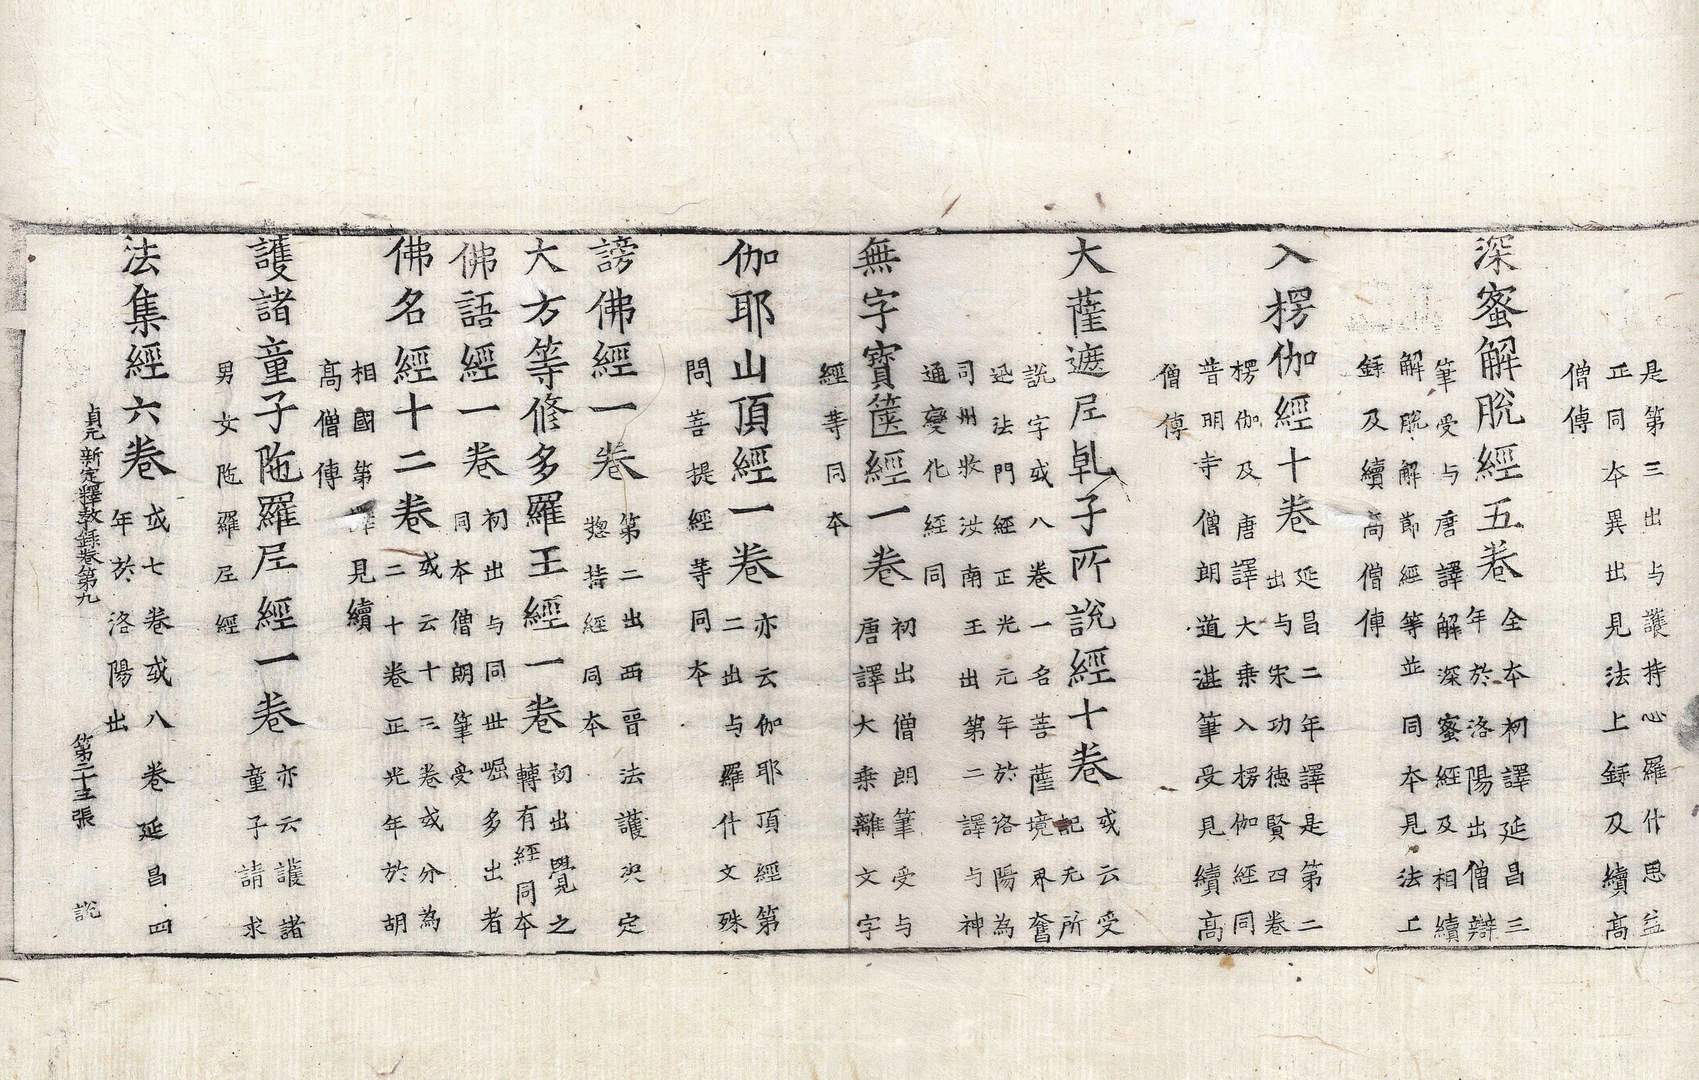 是第三出与護持心羅什思益
正同本異出見法上録及續高
僧傳
深蜜解脫經五卷
全本初譯延昌三
年於洛陽出僧辯
筆受与唐譯解深蜜經及相續
解脫解節經等並同本見法上
録及續高僧傳
入楞伽經十卷
延昌二年譯是第二
出与宋功德賢四卷
楞伽及唐譯大乗入楞伽經同
昔明寺僧朗道湛筆受見續高
僧傳
大薩遮尼乹子所說經十卷
或云受
記无所
說字或八卷一名菩薩境界奮
迅法門經正光元年於洛陽為
司州牧汝南王出第二譯与神
通變化經同
無字寶篋經一卷
初出僧朗筆受与
唐譯大乗離文字
經等同本
伽耶山頂經一卷
亦云伽耶頂經第
二出与羅什文殊
問菩提經等同本
謗佛經一卷
第二出西晉法護決定
惣持經同本
大方等修多羅王經一卷
初出覺之
轉有經同本
佛語經一卷
初出与同世崛多出者
同本僧朗筆受
佛名經十二卷
或云十三卷或分為
二十卷正光年於胡
相國第譯見續
高僧傳
護諸童子陁羅尼經一卷
亦云護諸
童子請求
男女陁羅尼經
法集經六卷
或七卷或八卷延昌四
年於洛陽出
貞元新定釋教録卷第九 第二十三張 說